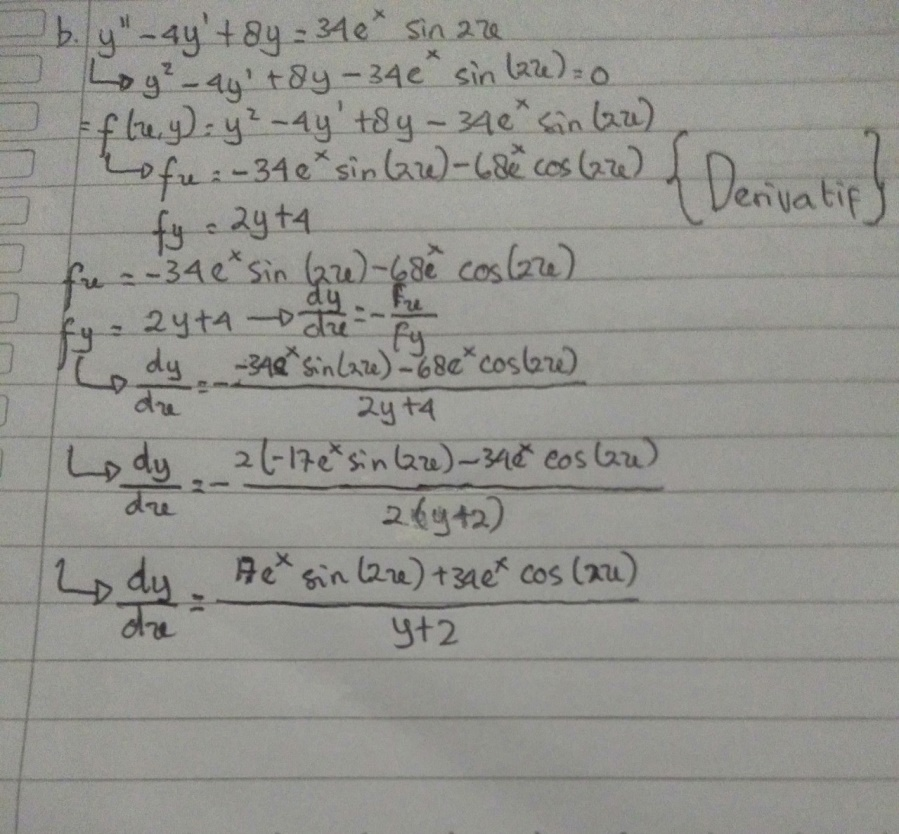 b. y'' - 4y' + 8y = 34e^x sin 2x
↳ y² - 4y' + 8y - 34e^x sin (2x) = 0
= f(x,y) = y² - 4y' + 8y - 34e^x sin (2x)
↳ fx = -34e^x sin (2x) - 68e^x cos (2x) {Derivatif}
fy = 2y+4
fx = -34e^x sin (2x) - 68e^x cos (2x)
fy = 2y+4 → dy/dx = - Fx/Fy
↳ dy/dx = - (-34e^x sin (2x) - 68e^x cos (2x)) / (2y+4)
↳ dy/dx = - 2(-17e^x sin (2x) - 34e^x cos (2x) / 2(y+2)
↳ dy/dx = 17e^x sin (2x) + 34e^x cos (2x) / y+2